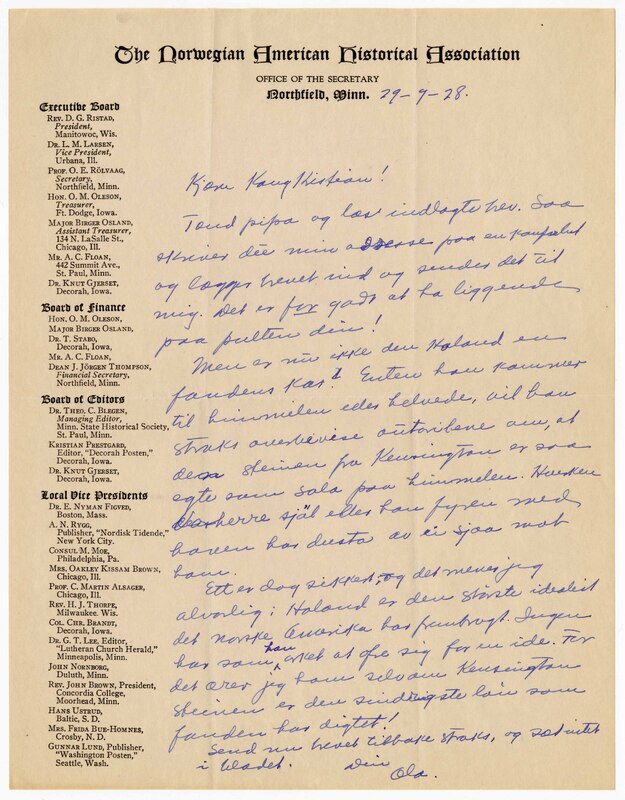 The Norwegian American Historical Association
OFFICE OF THE SECRETARY
Northfield, Minn. 29-9-28.
Executive Board
REV. D. G. RISTAD,
President,
Manitowoc, Wis.
DR. L. M. LARSEN,
Vice President,
Urbana, Ill.
PROF. O. E. RÖLVAAG,
Secretary,
Northfield, Minn.
HON. O. M. OLESON,
Treasurer,
Ft. Dodge, Iowa.
MAJOR BIRGER OSLAND,
Assistant Treasurer,
134 N. LaSalle St.,
Chicago, Ill.
MR. A. C. FLOAN,
442 Summit Ave.,
St. Paul, Minn.
DR. KNUT GJERSET,
Decorah, Iowa.
Board of Finance
HON. O. M. OLESON,
MAJOR BIRGER OSLAND,
DR. T. STABO,
Decorah, Iowa,
MR. A. C. FLOAN,
DEAN J. JÖRGEN THOMPSON,
Financial Secretary,
Northfield, Minn.
Board of Editors
DR. THEO. C. BLEGEN,
Managing Editor,
Minn. State Historical Society,
St. Paul, Minn.
KRISTIAN PRESTGARD,
Editor, "Decorah Posten,"
Decorah, Iowa.
DR. KNUT GJERSET,
Decorah, Iowa.
Local Vice Presidents
DR. E. NYMAN FIGVED,
Boston, Mass.
A. N. RYGG,
Publisher, "Nordisk Tidende,"
New York City.
CONSUL M. MOE,
Philadelphia, Pa.
MRS. OAKLEY KISSAM BROWN,
Chicago, Ill.
PROF. C. MARTIN ALSAGER,
Chicago, Ill.
REV. H. J. THORPE,
Milwaukee. Wis.
COL. CHR. BRANDT,
Decorah, Iowa.
DR. G. T. LEE, Editor,
"Lutheran Church Herald,"
Minneapolis, Minn.
JOHN NORNBORG,
Duluth, Minn.
REV. JOHN BROWN, President,
Concordia College,
Moorhead, Minn.
HANS USTRUD,
Baltic, S. D.
MRS. FRIDA BUE-HOMNES,
Crosby, N. D.
GUNNAR LUND, Publisher,
"Washington Posten,"
Seattle, Wash.
Kjære Kong Kristian!
Tend pipa og læs indlagte brev. Saa
skriver du min adresse paa en konvolut
og lægger brevet ind og sender det til
mig. Det er for godt at ha liggende
paa pulten din!
Men er nu ikke den Holand en
fandens kar? Enten han kommer
til himmelen eller helvede, vil han
straks overbevise autoritene om, at
steinen fra Kensington er saa
egte som sola paa himmelen. Hverken
Vaarherre själ eller han fyren med
hoven har dusta av ei sjaa mot
ham.
Ett er dog sikkert, og det mener jeg
alvorlig: Holand er den største idealist
det norske Amerika har frembragt. Ingen
har som han orket at ofre sig for en ide. For
det ærer jeg ham selvom Kensington
steinen er den sindrigste løin som
fanden har digtet!
Send nu brevet tilbake straks, og sæt intet
i bladet. Din
Ola.